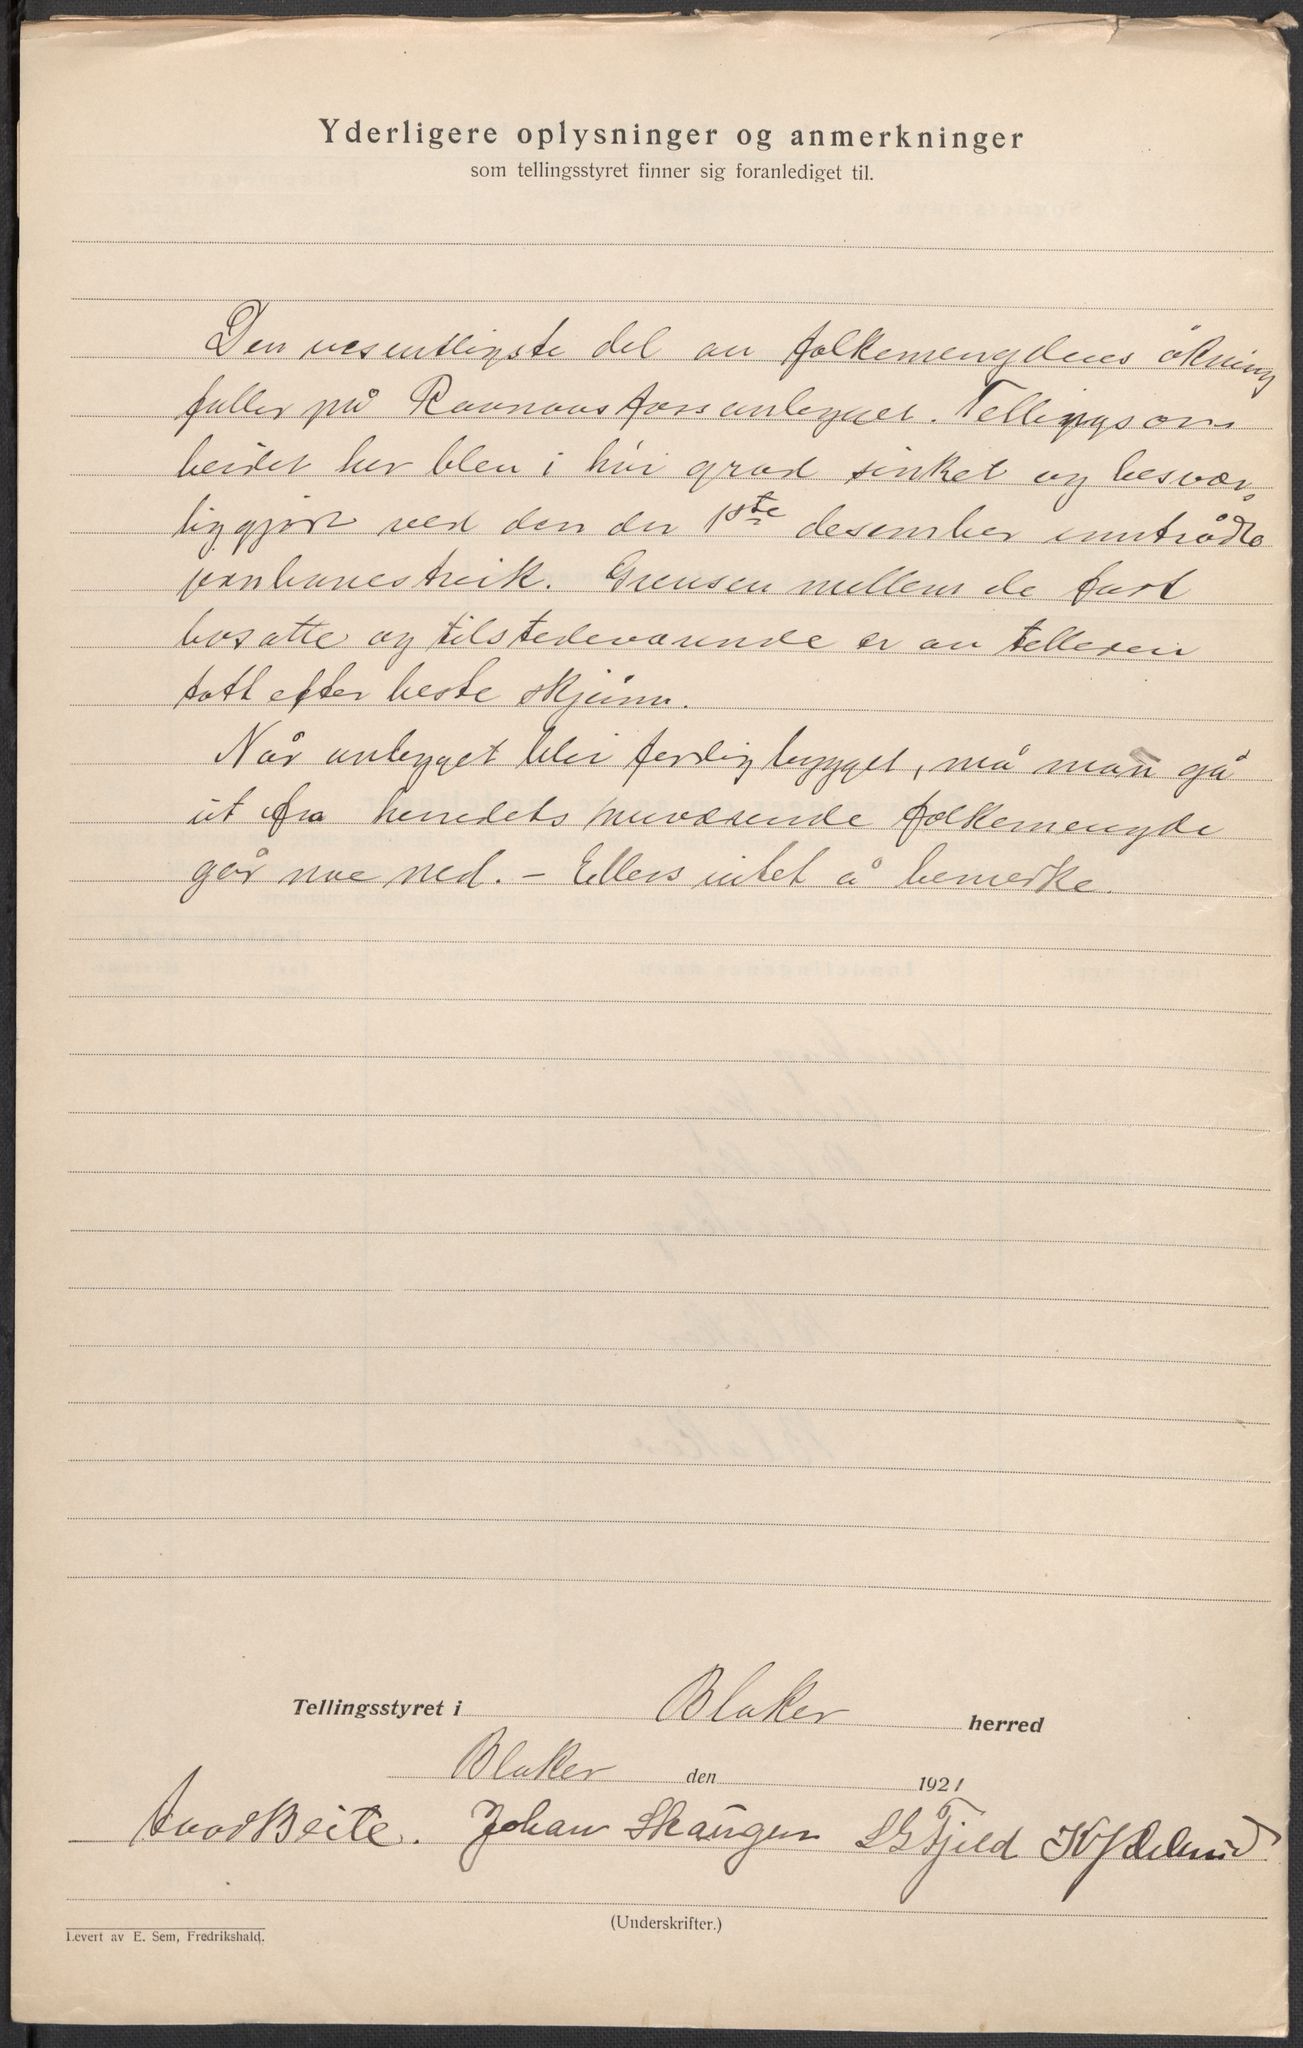 Yderligere oplysninger og anmerkninger
som tellingsstyret finner sig foranlediget til.
Den vesentligste del av folkemengdens økning
faller på Raanaasfossanlegget. Tellingsar-
beidet her blev i høi grad sinket og besvær-
liggjort ved den der 1ste desember inntrådte
jernbanestreik. Grensen mellem de fast
bosatte og tilstedeværende er av telleren
tatt efter beste skjønn.
Når anlegget blir ferdig bygget, må man gå
ut fra herredets nuværende folkemengde
går noe ned. - Ellers intet å bemerke.
Tellingsstyret i Blaker herred
Blaker den 1921
Beite. Johan Skaugen S G Fjeld
(Underskrifter.)
Levert av E. Sem, Fredrikshald.